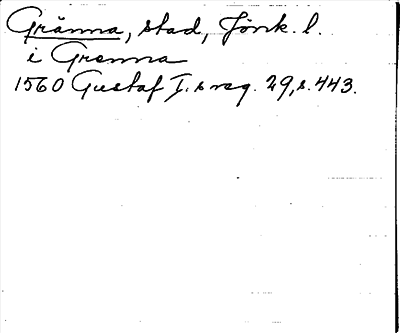 Gränna, stad, Jönk. l.
i Grenna
1560 Gustaf I. s reg. 29, s. 443.